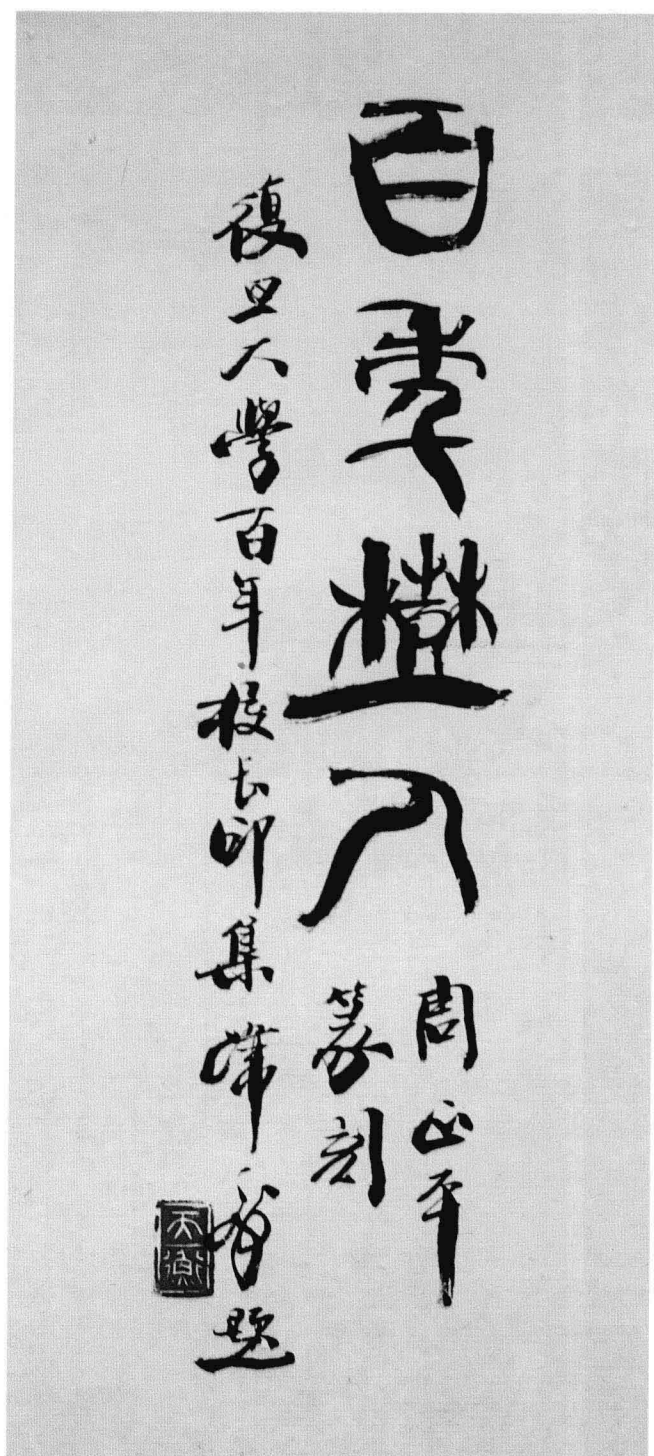 百年樹人
周正平
篆刻
復旦大學百年校長印集 韓天衡題
天衡